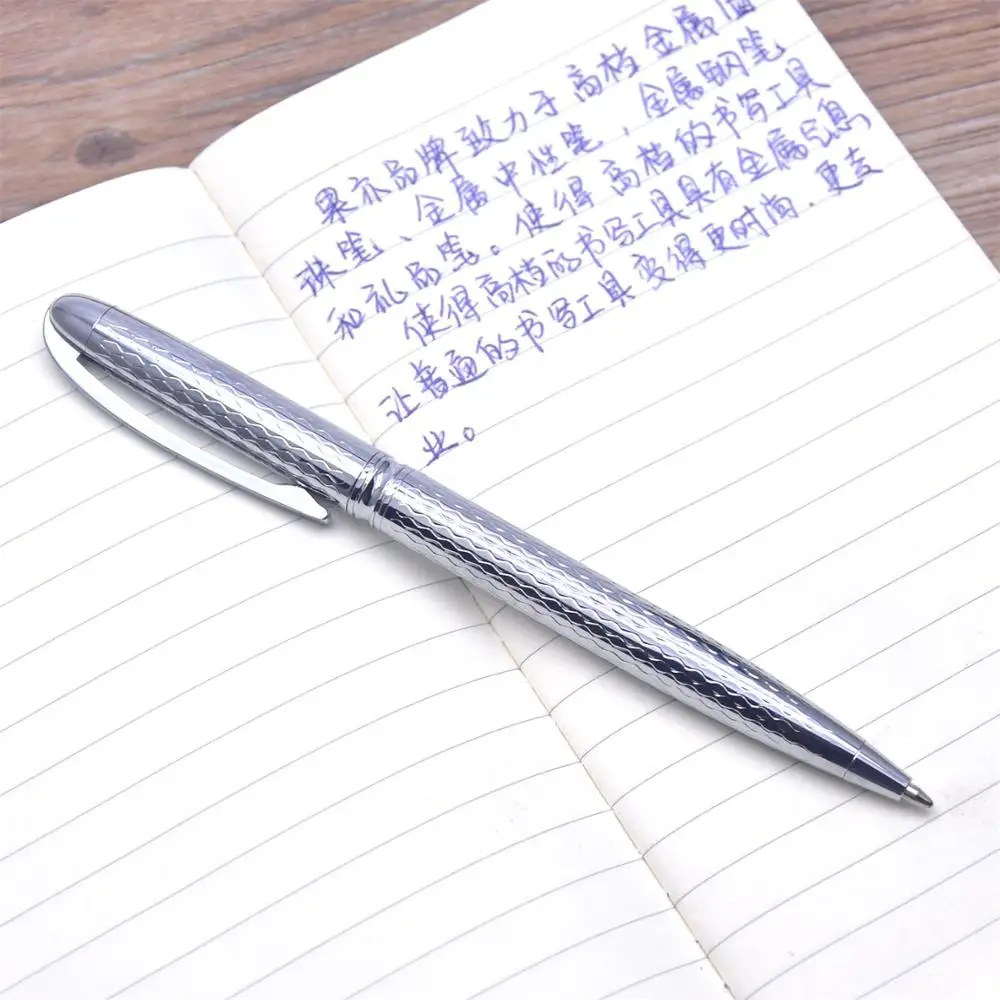 果示品牌致力于高档金属圆
珠笔、金属中性笔,金属钢笔
和礼品笔。使得高档的书写工具
使得高档的书写工具具有金属气息
让普通的书写工具变得更时尚.更专
业。